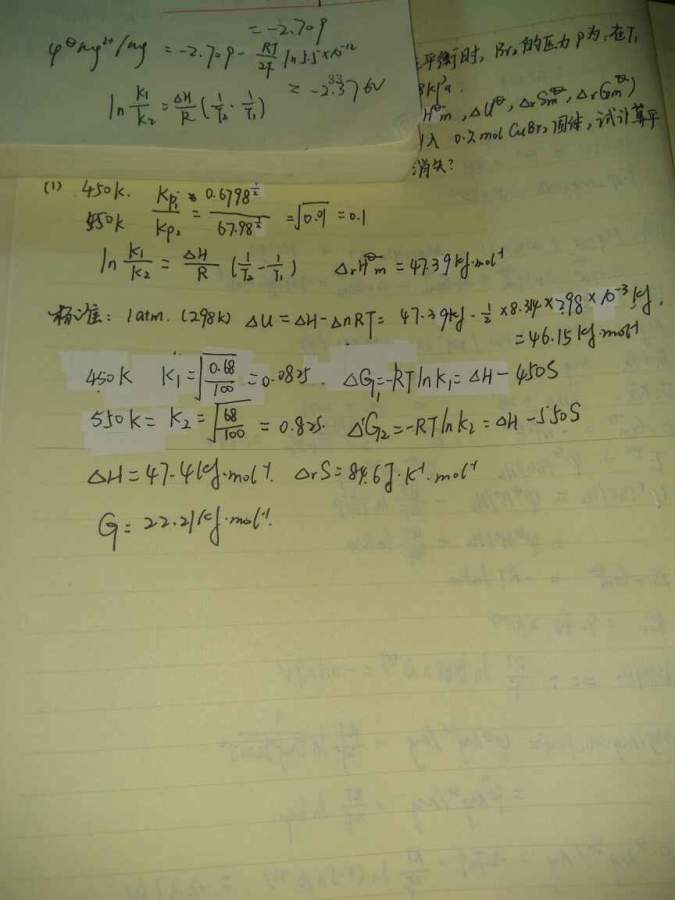 = -2.709
φ^θ Mg²⁺/Mg = -2.709 - RT/2F ln 5.5×10⁻¹²
= -2.376V
ln K₁/K₂ = ΔH/R (1/T₂ - 1/T₁)
平衡时, Br₂ 的压力 P为: 在T₁
kPa.
ΔU^θ, ΔrSm^θ, ΔrGm^θ)
入 0.2mol CuBr₂ 固体, 试计算平
消失?
(1) 450k. Kp₁/Kp₂ = 0.6798^½/67.98^½ = √0.01 = 0.1
550k
ln K₁/K₂ = ΔH/R (1/T₂ - 1/T₁) ΔrHm^θ = 47.39kJ·mol⁻¹
标准: 1atm. (298k) ΔU = ΔH - ΔnRT = 47.39kJ - ½ × 8.314 × 298 × 10⁻³ kJ.
= 46.15 kJ·mol⁻¹
450k K₁ = √(0.68/100) = 0.0825. ΔG₁ = -RT ln K₁ = ΔH - 450S
550k = K₂ = √(68/100) = 0.825. ΔG₂ = -RT ln K₂ = ΔH - 550S
ΔH = 47.4kJ·mol⁻¹. ΔrS = 84.6J·K⁻¹·mol⁻¹
G = 22.21kJ·mol⁻¹.